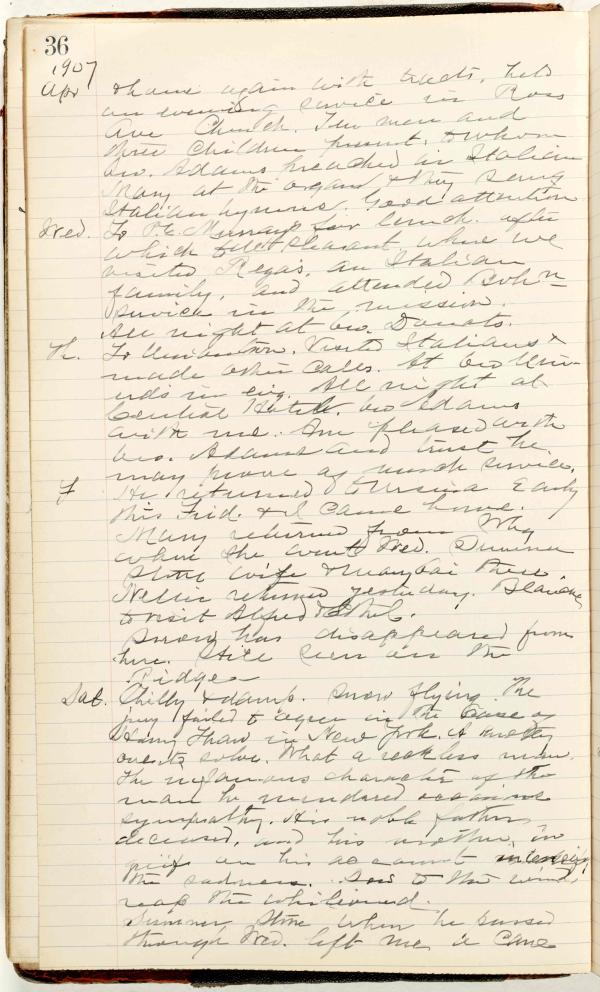 36
1907
Apr & home again with tracts, held
an evening service in Ross
Ave Church. Ten men and
three children present, to whom
bro. Adams preached in Italian
Mary at the organ & they sang
Italian hymns. Good attention
Wed. To P.E. for lunch, after
which to Mt Pleasant where we
visited Regas, an Italian
family, and attended Boh'n
service in the mission.
All night at bro. Donats.
Th. To Uniontown. Visited Italians &
made other calls. At bro
in eve'g. All night at
Central Hotel. bro Adams
with me. Am pleased with
bro. Adams and trust he
may prove of much service.
F He returned to Ursina early
this Frid. & I came home.
Mary returned from
where she went Wed. Sumner
Stone wife & there.
Nellie returned yesterday. Blanche
to visit Alfred & Ethel.
Snow has disappeared from
here. Still seen on the
Ridges
Sat. Chilly & damp. Snow flying. The
jury failed to agree in the Case of
Harry Thaw in New York. A knotty
one to solve. What a reckless man.
The infamous character of the
man he murdered occasions
sympathy. His noble father,
deceased, and his mother, in
grief on his account intensify
the sadness. Sow to the wind,
reap the whirlwind.
Sumner Stone when he passed
through Wed. left me a Cane